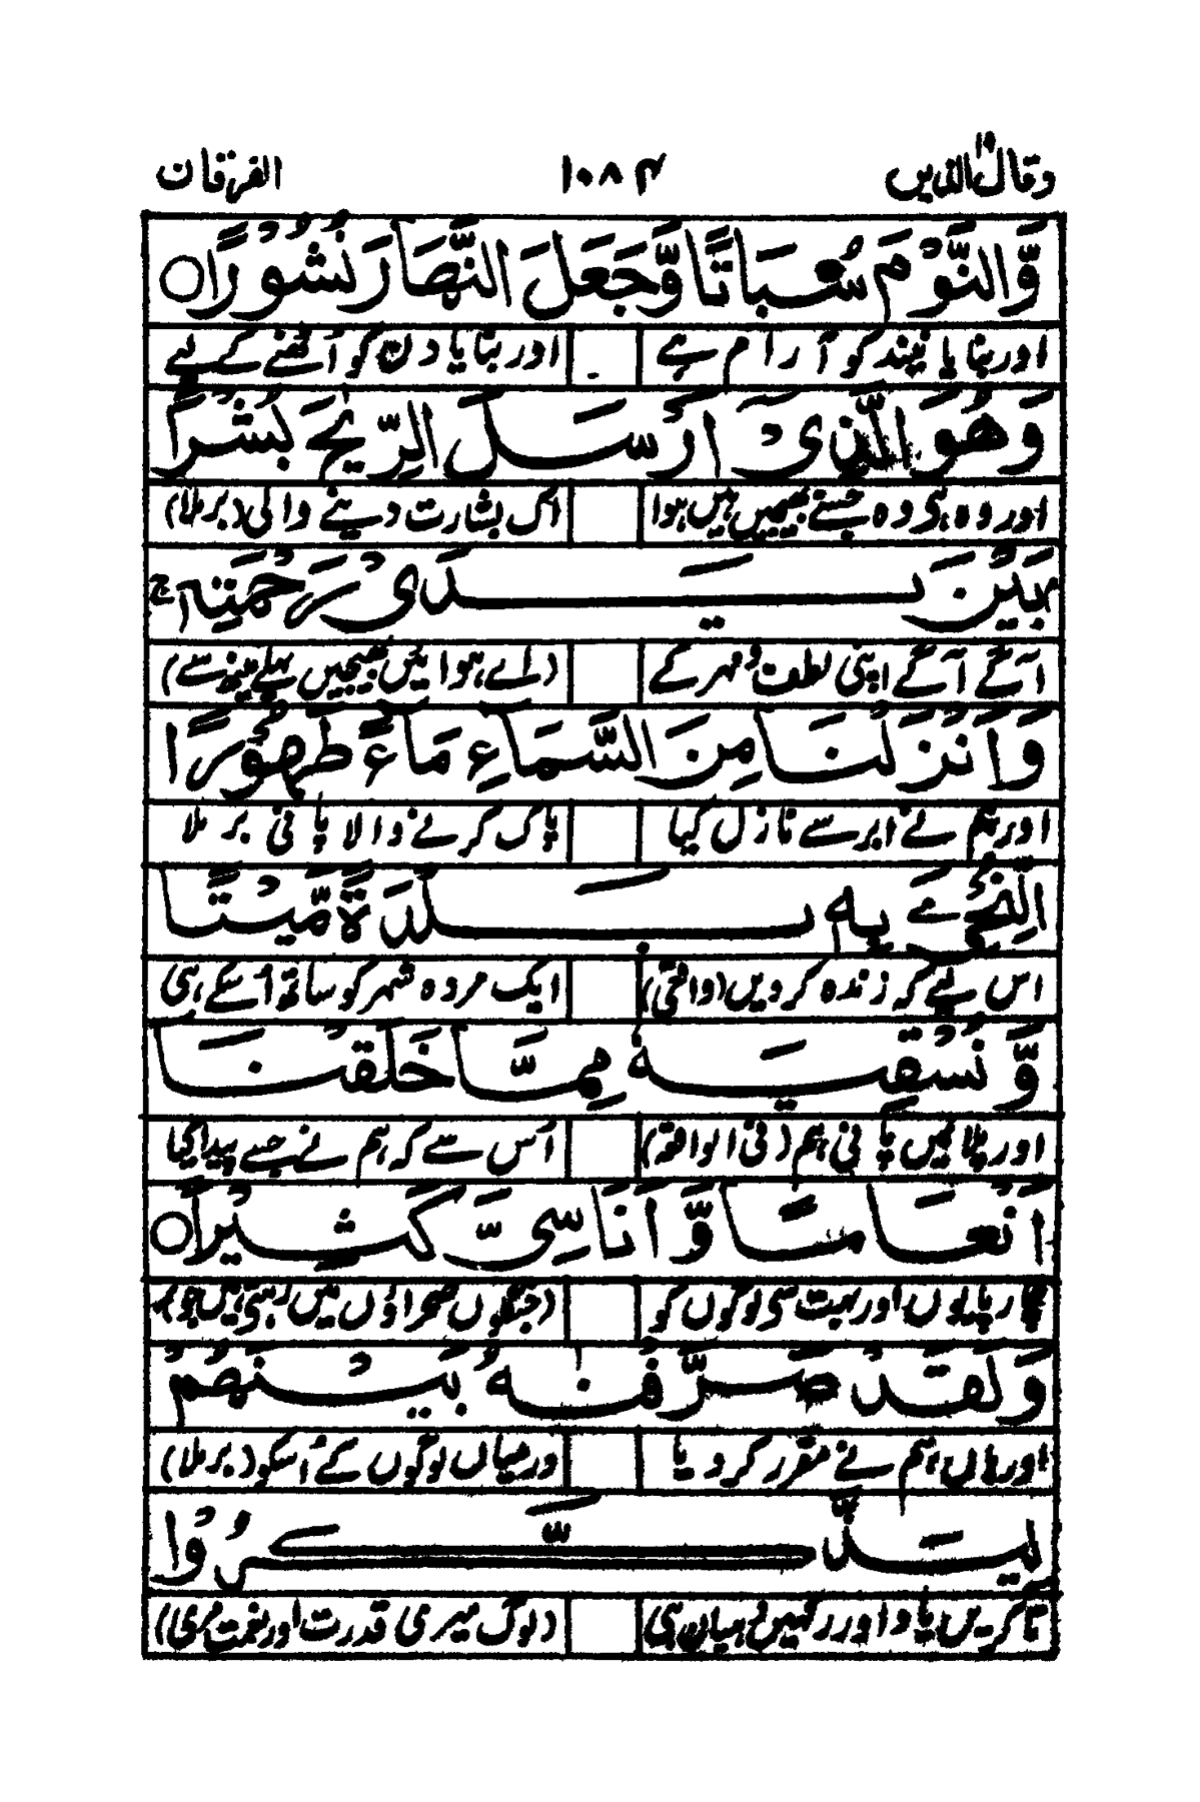 وقال الذین ۱۹ ۱۰۸۴ الفرقان
وَّالنَّوْمَ سُبَاتًا وَّجَعَلَ النَّهَارَ نُشُوْرًا ○
اور بنا یا نیند کو آرام ہے اور بنا یا دن کو اُٹھنے کے لیے
وَهُوَ الَّذِیْٓ اَرْسَلَ الرِّیٰحَ بُشْرًا
اور وہ ہی وہ جسنے بھیجیں ہیں ہوا اک بشارت دینے والی (بر ملا)
بَیْنَ یَدَیْ رَحْمَتِهٖ ج
آگے آگے اپنی لطف و مہر کے (لے ہوائیں بھیجیں پہلے مینہ سے)
وَاَنْزَلْنَا مِنَ السَّمَآءِ مَآءً طَهُوْرًا
اور ہم نے ابر سے نازل کیا پاک کرنے والا پانی بر ملا
لِّنُحْیِۦَ بِهٖ بَلْدَةً مَّیْتًا
اس لیے کہ زندہ کر دیں (واقعی) ایک مردہ شہر کو ساتھ اُسکے ہی
وَّ نُسْقِیَهٗ مِمَّا خَلَقْنَا
اور پلائیں پانی ہم (فی الواقع) اُس سے کہ ہم نے جسے پیدا کیا
اَنْعَامًا وَّ اَنَاسِیَّ كَثِیْرًا ○
چار پایوں اور بہت سی لوگوں کو (جنگلوں صحراؤں میں رہتی ہیں جو)
وَلَقَدْ صَرَّفْنٰهُ بَیْنَهُمْ
اور ہاں ہم نے مقرر کر دیا درمیاں لوگوں کے اُسکو (بر ملا)
لِیَذَّكَّرُوْا
تا کریں یاد اور رکھیں دھیان ہی (لوگ میری قدرت اور نعمت مری)